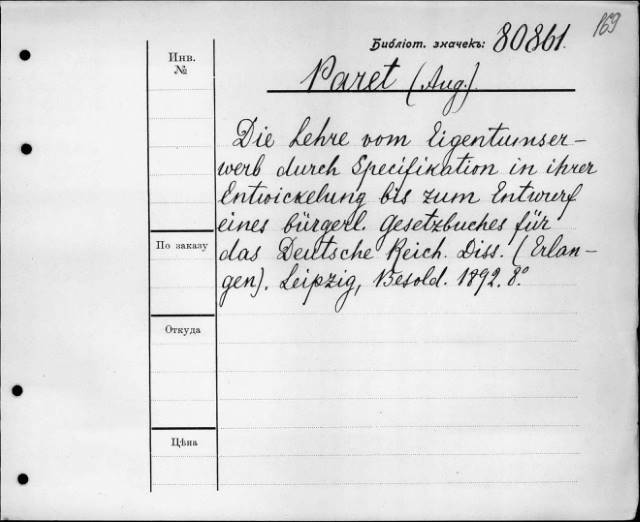 169
Библіот. значекъ: 80861.
Инв.
№
Paret (Aug.)
Die Lehre vom Eigentumser-
werb durch Specifikation in ihrer
Entwickelung bis zum Entwurf
eines bürgerl. Gesetzbuches für
По заказу
das Deutsche Reich. Diss. (Erlan-
gen). Leipzig, Besold. 1892. 8.º
Откуда
Цѣна